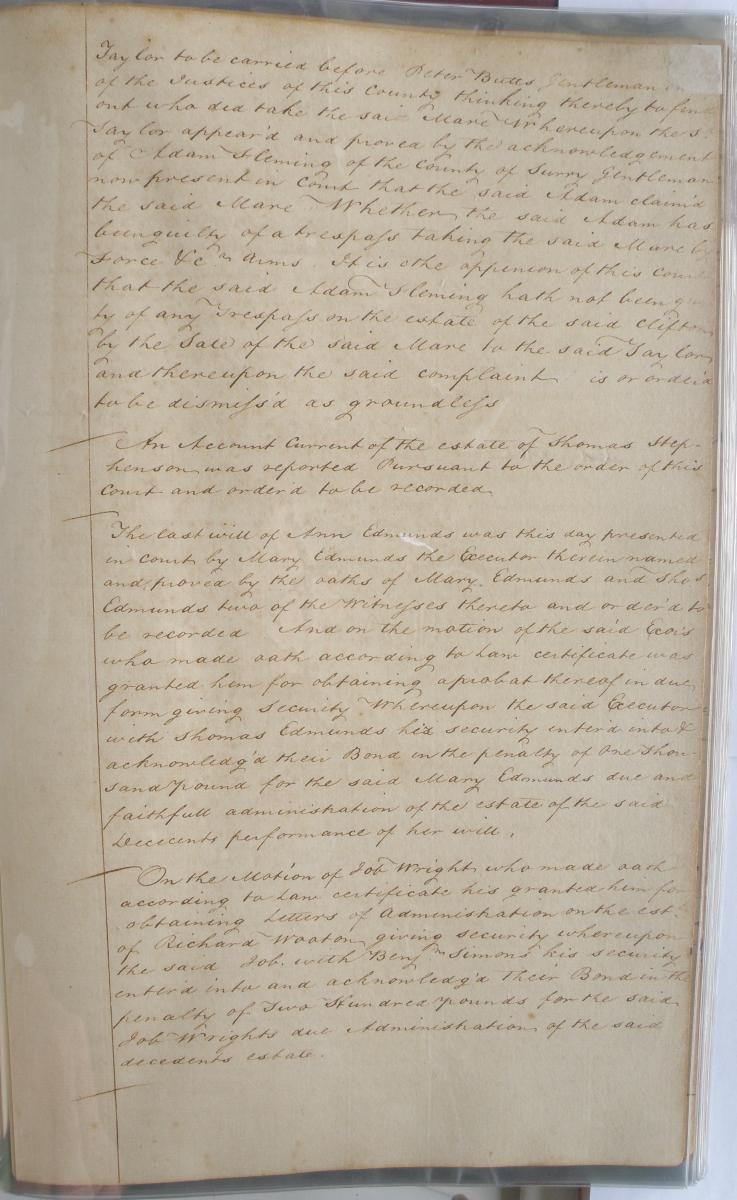 Taylor to be carried before Peter Butts Gentleman
of the Justices of this County thinking thereby to find
out who did take the said Mare Whereupon the s.d
Taylor appear'd and proved by the acknowledgement
of Adam Fleming of the County of Surry Gentleman
now present in Court that the said Adam claim'd
the said Mare Whether the said Adam has
been guilty of a trespass taking the said Mare by
Force &c. Arms. It is othe oppinion of this Court
that the said Adam Fleming hath not been
ty of any Trespass on the estate of the said Clifton
by the Sale of the said Mare to the said Taylor
and thereupon the said complaint is or order'd
to be dismiss'd as groundless
An Account Current of the estate of Thomas Step-
henson was reported Pursuant to the order of this
Court and order'd to be recorded
The last will of Ann Edmunds was this day presented
in Court by Mary Edmunds the Executor therein named
and proved by the oaths of Mary Edmunds and Thos
Edmunds two of the Witnesses thereto and order'd to
be recorded And on the motion of the said Exors
who made oath according to Law certificate was
granted him for obtaining a probat thereof in due
form giving Security Whereupon the said Executor
with Thomas Edmunds his security enter'd into &
acknowledg'd their Bond in the penalty of One Thou-
sand Pound for the said Mary Edmunds due and
faithfull administration of the estate of the said
Dececents performance of her will.
On the Motion of Job Wright who made oath
according to Law certificate his granted him for
obtaining Letters of Administration on the est.
of Richard Wooton giving security whereupon
the said Job. with Benj.n Simons his security
enter'd into and acknowledg'd their Bond in the
penalty of Two Hundred Pounds for the said
Job Wrights due Administration of the said
decedents estate.